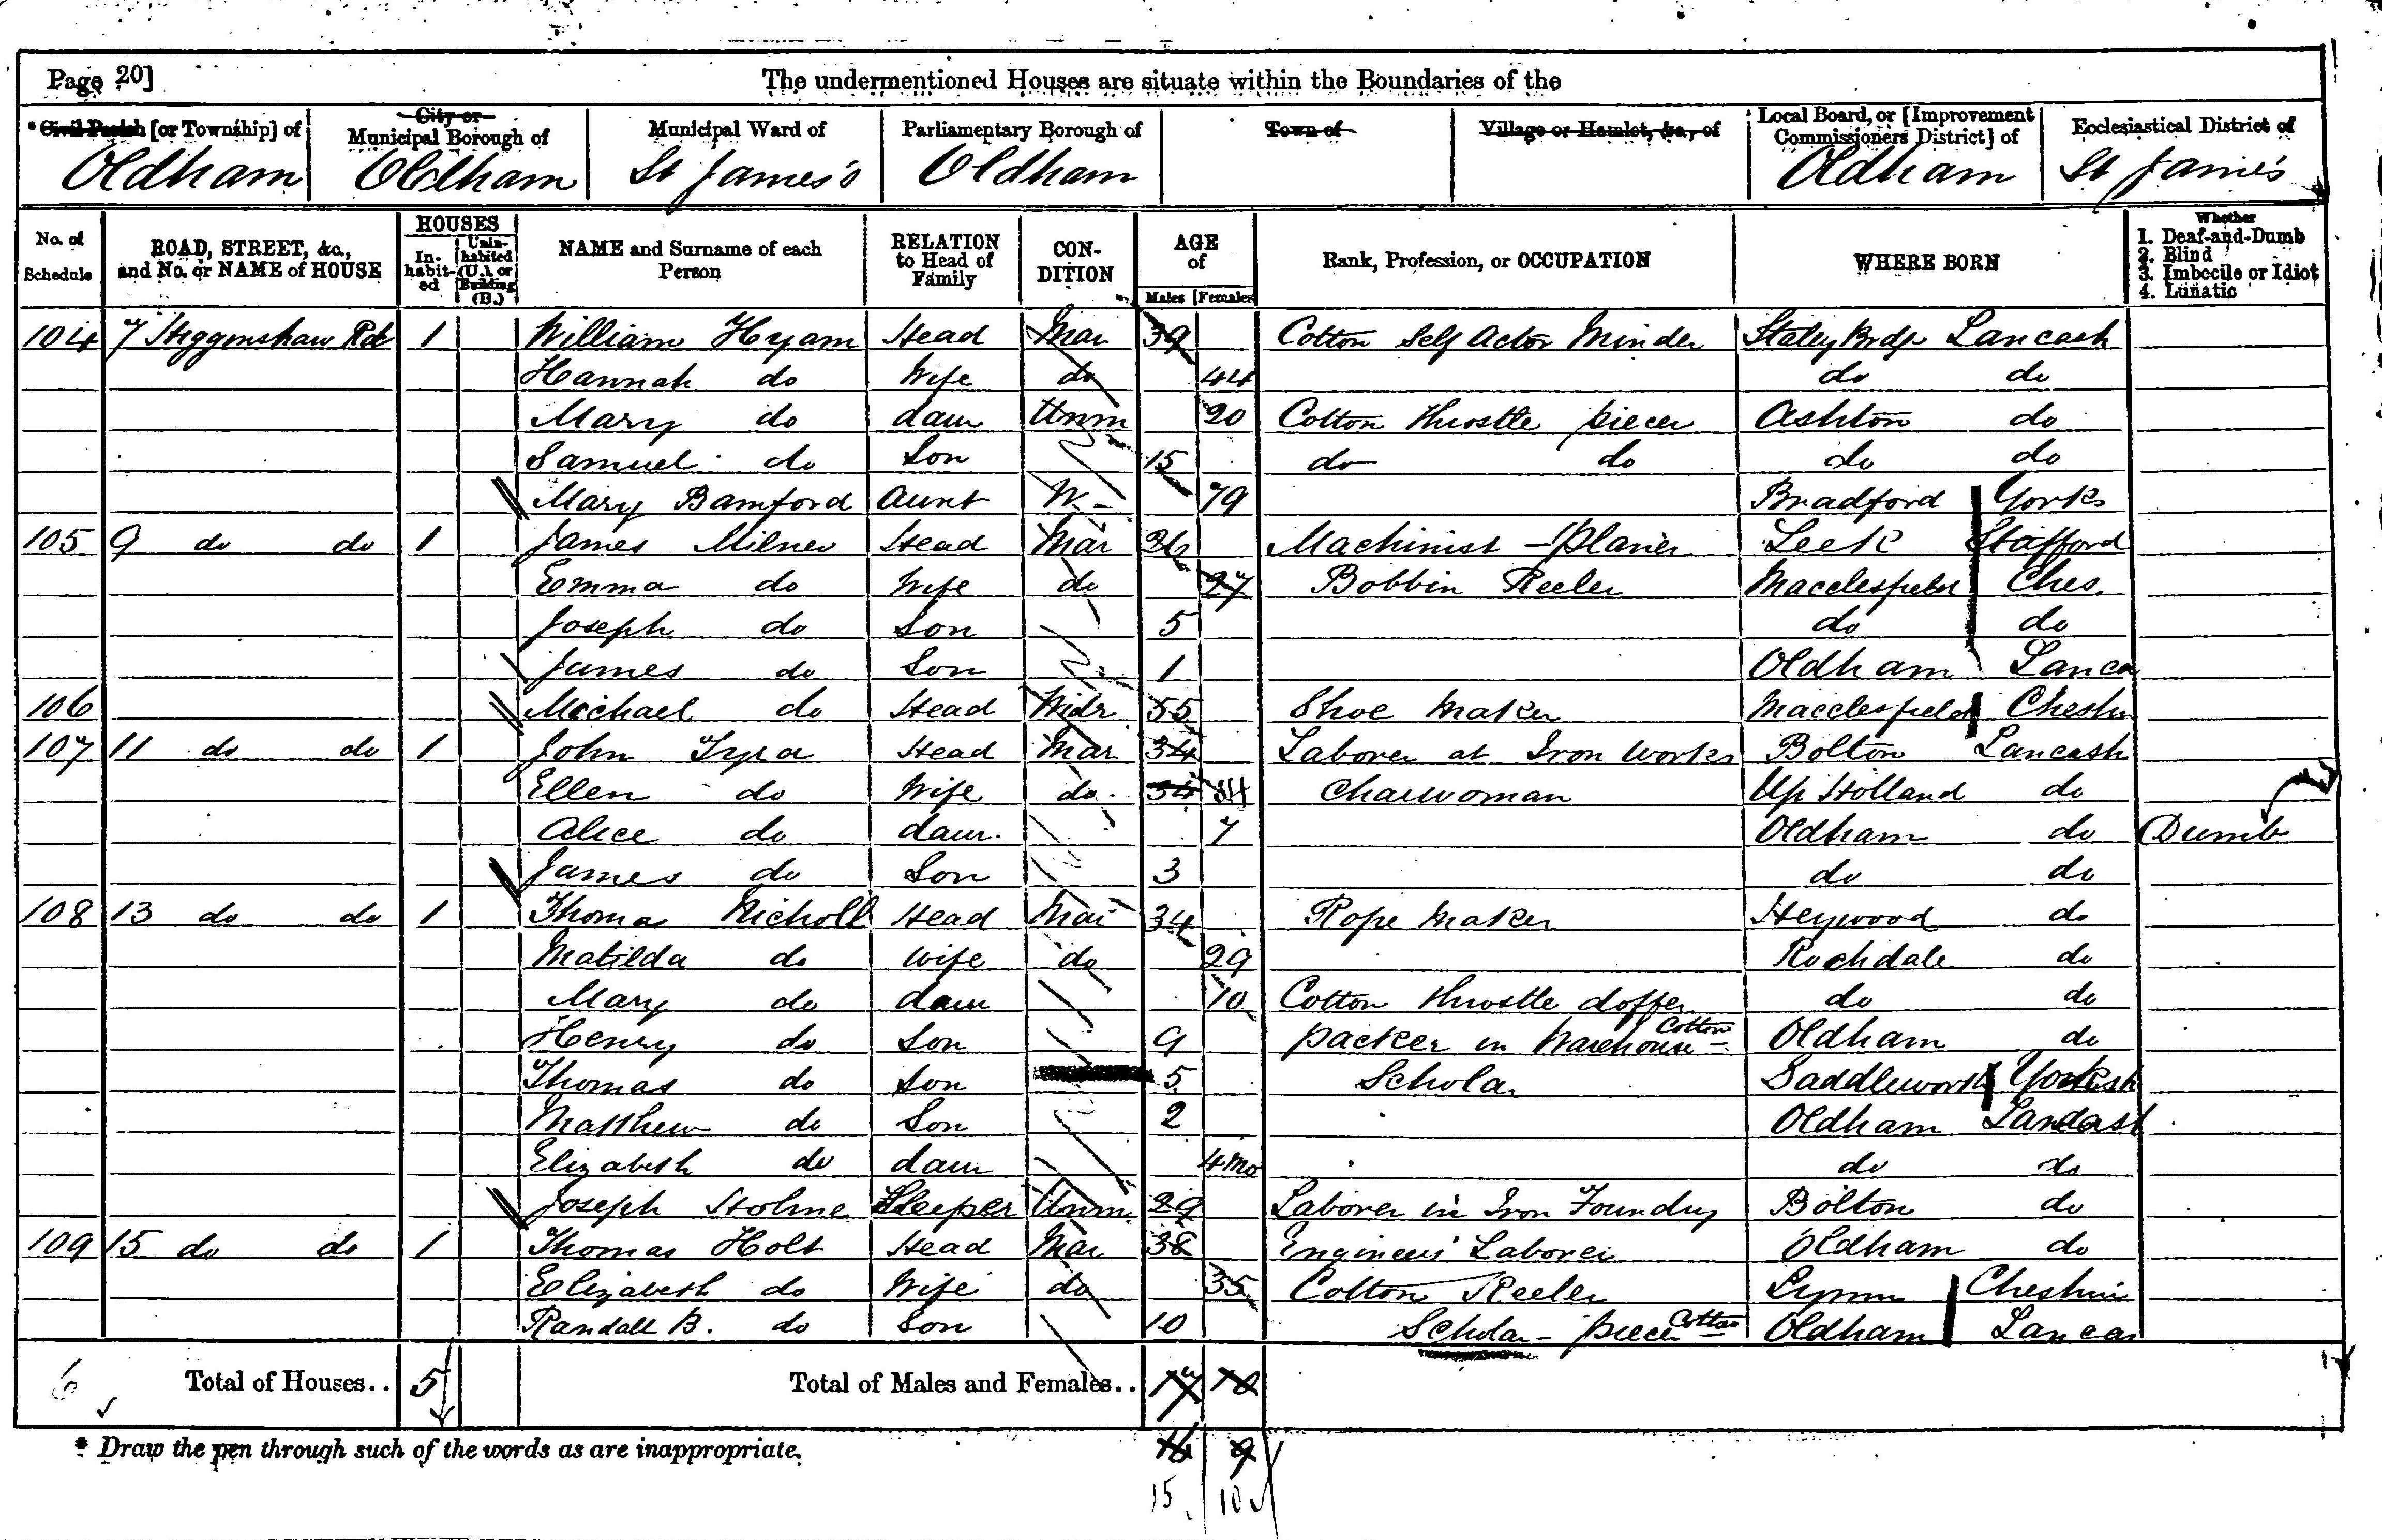 Page 20]
The undermentioned Houses are situate within the Boundaries of the
* Civil Parish [or Township] of
Oldham
City or Municipal Borough of
Oldham
Municipal Ward of
St James's
Parliamentary Borough of
Oldham
Town of
Village or Hamlet, &c., of
Local Board, or [Improvement Commissioners District] of
Oldham
Ecclesiastical District of
St James's
No. of Schedule
ROAD, STREET, &c., and No. or NAME of HOUSE
HOUSES
In-habit-ed
Unin-habited (U.), or Building (B.)
NAME and Surname of each Person
RELATION to Head of Family
CON-DITION
AGE of
Males
Females
Rank, Profession, or OCCUPATION
WHERE BORN
Whether
1. Deaf-and-Dumb
2. Blind
3. Imbecile or Idiot
4. Lunatic
104 7 Higginshaw Rd 1 William Hyam Head Mar 39 Cotton Self Actor Minder Staley Brdge Lancash
Hannah do Wife do 44 do do
Mary do daur Unm 20 Cotton Throstle piecer Ashton do
Samuel do Son 15 do do do do
Mary Bamford Aunt W 79 Bradford Yorks
105 9 do do 1 James Milner Head Mar 26 Machinist - Planer Leek Stafford
Emma do Wife do 27 Bobbin Reeler Macclesfield Ches.
Joseph do Son 5 do do
James do Son 1 Oldham Lanca
106 Michael do Head Widr 55 Shoe Maker Macclesfield Cheshr
107 11 do do 1 John Tyra Head Mar 34 Laborer at Iron Works Bolton Lancash
Ellen do Wife do 34 34 Charwoman Up Holland do
Alice do daur. 7 Oldham do Dumb
James do Son 3 do do
108 13 do do 1 Thomas Nicholl Head Mar 34 Rope Maker Heywood do
Matilda do Wife do 29 Rochdale do
Mary do daur 10 Cotton Throstle doffer do do
Henry do Son 9 packer in Cotton Warehouse Oldham do
Thomas do Son 5 Scholar Saddleworth Yorksh
Matthew do Son 2 Oldham Lancash
Elizabeth do daur 4 Mo do do
Joseph Holme Sleeper Unm 29 Laborer in Iron Foundry Bolton do
109 15 do do 1 Thomas Holt Head Mar 38 Engineers Laborer Oldham do
Elizabeth do Wife do 35 Cotton Reeler Lymm Cheshire
Randall B. do Son 10 Scholar - Cotton piecer Oldham Lancas
6 Total of Houses.. 5 Total of Males and Females.. 17 10
* Draw the pen through such of the words as are inappropriate.
16 9
15 10